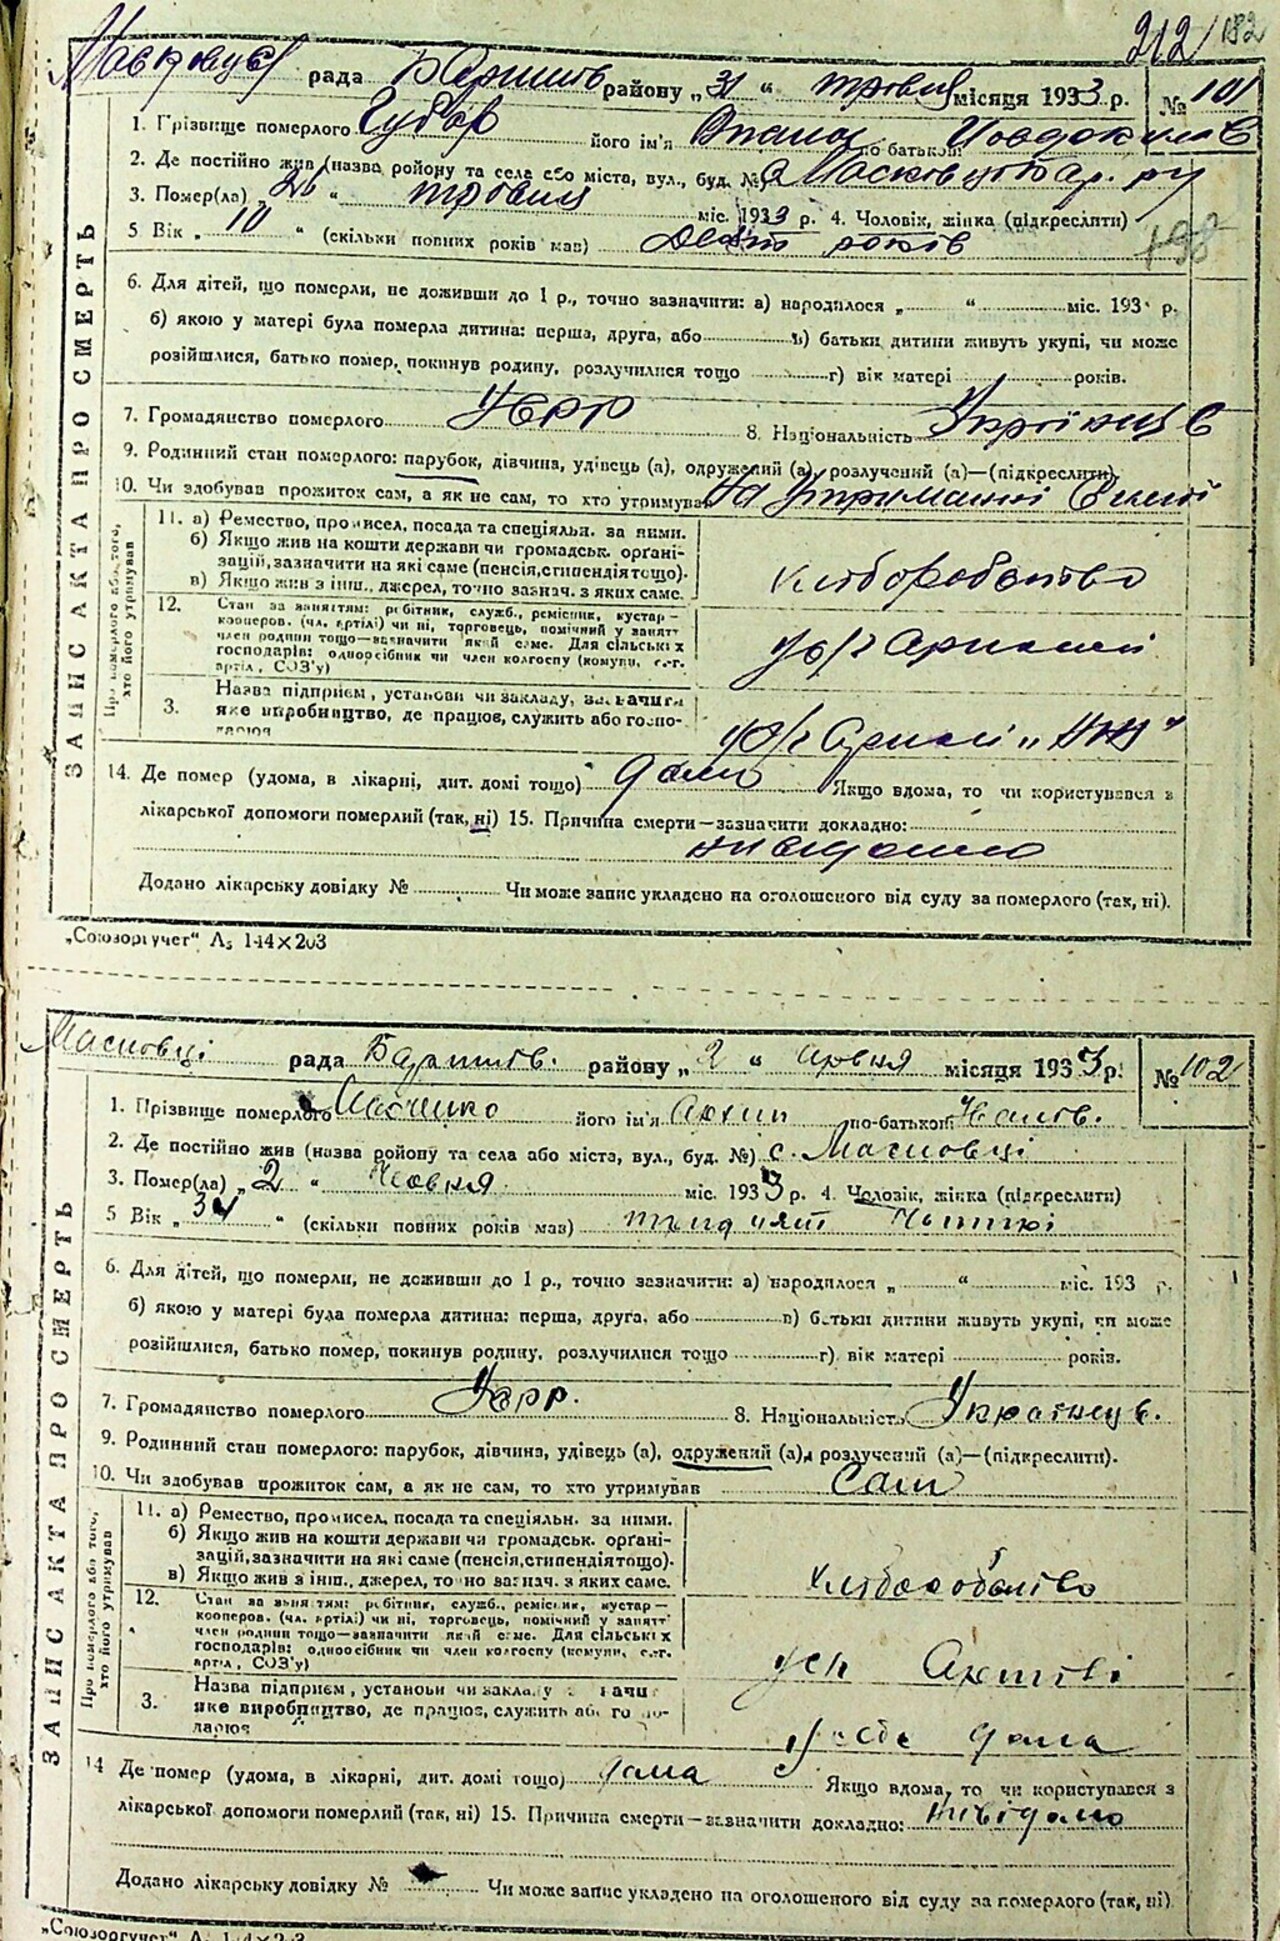 212 182
рада Баришів району „31“ травня місяця 1933 р. № 101
1. Прізвище померлого Губар його ім'я Опанас по батькові
2. Де постійно жив (назва ройону та села або міста, вул., буд. №)
3. Помер(ла) „ “ травня міс. 1933 р. 4. Чоловік, жінка (підкреслити)
5 Вік „10“ (скільки повних років мав) років
198
6. Для дітей, що померли, не доживши до 1 р., точно зазначити: а) народилося „ “ міс. 193 р.
б) якою у матері була померла дитина: перша, друга, або в) батьки дитини живуть укупі, чи може
розійшлися, батько помер, покинув родину, розлучилися тощо г) вік матері років.
7. Громадянство померлого УСРР 8. Національність
9. Родинний стан померлого: парубок, дівчина, удівець (а), одружений (а), розлучений (а)—(підкреслити)
10. Чи здобував прожиток сам, а як не сам, то хто утримував на утриманні
ЗАПИС АКТА ПРО СМЕРТЬ
Про померлого або того, хто його утримував
11. а) Ремество, промисел, посада та спеціяльн. за ними.
б) Якщо жив на кошти держави чи громадськ. орґані-
зацій, зазначити на які саме (пенсія, стипендія тощо).
в) Якщо жив з інш., джерел, точно зазнач. з яких саме.
хліборобство
12. Стан за заняттям: робітник, служб., ремісник, кустар—
кооперов. (чл. артілі) чи ні, торговець, помічний у занятт
член родини тощо—зазначити який саме. Для сільських
господарів: одноосібник чи член колгоспу (комуни, с.-г.
артіл, СОЗ'у)
3. Назва підприєм, установи чи закладу, зазначити
яке виробництво, де працює, служить або госпо-
дарює
14. Де помер (удома, в лікарні, дит. домі тощо) дома Якщо вдома, то чи користувався з
лікарської допомоги померлий (так, ні) 15. Причина смерти—зазначити докладно:
невідомо
Додано лікарську довідку № Чи може запис укладено на оголошеного від суду за померлого (так, ні).
„Союзоргучет“ А5 144×203
Масковці рада Баришів. району „2“ червня місяця 1933 р. № 102
1. Прізвище померлого його ім'я по-батькові
2. Де постійно жив (назва ройону та села або міста, вул., буд. №) с. Масковці
3. Помер(ла) „2“ червня міс. 1933 р. 4. Чоловік, жінка (підкреслити)
5 Вік „34“ (скільки повних років мав) тридцят
6. Для дітей, що померли, не доживши до 1 р., точно зазначити: а) народилося „ “ міс. 193 р.
б) якою у матері була померла дитина: перша, друга, або в) батьки дитини живуть укупі, чи може
розійшлися, батько помер, покинув родину, розлучилися тощо г) вік матері років.
7. Громадянство померлого УСРР. 8. Національність
9. Родинний стан померлого: парубок, дівчина, удівець (а), одружений (а), розлучений (а)—(підкреслити).
10. Чи здобував прожиток сам, а як не сам, то хто утримував сам
ЗАПИС АКТА ПРО СМЕРТЬ
Про померлого або того, хто його утримував
11. а) Ремество, промисел, посада та спеціяльн. за ними.
б) Якщо жив на кошти держави чи громадськ. орґані-
зацій, зазначити на які саме (пенсія, стипендія тощо).
в) Якщо жив з інш., джерел, точно зазнач. з яких саме.
хліборобство
12. Стан за заняттям: робітник, служб., ремісник, кустар—
кооперов. (чл. артілі) чи ні, торговець, помічний у занятт
член родини тощо—зазначити який саме. Для сільських
господарів: одноосібник чи член колгоспу (комуни, с.-г.
артіл, СОЗ'у)
3. Назва підприєм, установи чи закладу зазначи
яке виробництво, де працює, служить або госпо-
дарює
у себе дома
14 Де помер (удома, в лікарні, дит. домі тощо) дома Якщо вдома, то чи користувався з
лікарської допомоги померлий (так, ні) 15. Причина смерти—зазначити докладно: невідомо
Додано лікарську довідку № Чи може запис укладено на оголошеного від суду за померлого (так, ні)
„Союзоргучет“ А5 144×203